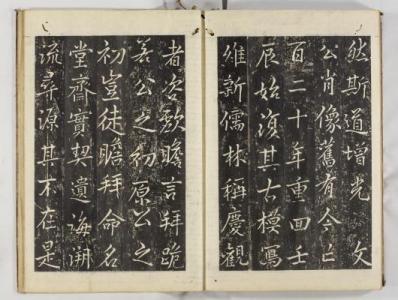 然斯道增光 文
公肖像舊有今亡
百二十年重回壬
辰始復其古模寫
維新儒林稱慶觀
者次歎瞻言拜跪
若公之初原公之
初豈徒瞻拜命名
堂齋實契遺海溯
流尋源其不在是